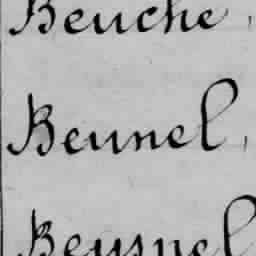 Beuche,
Beunel,
Beusnel